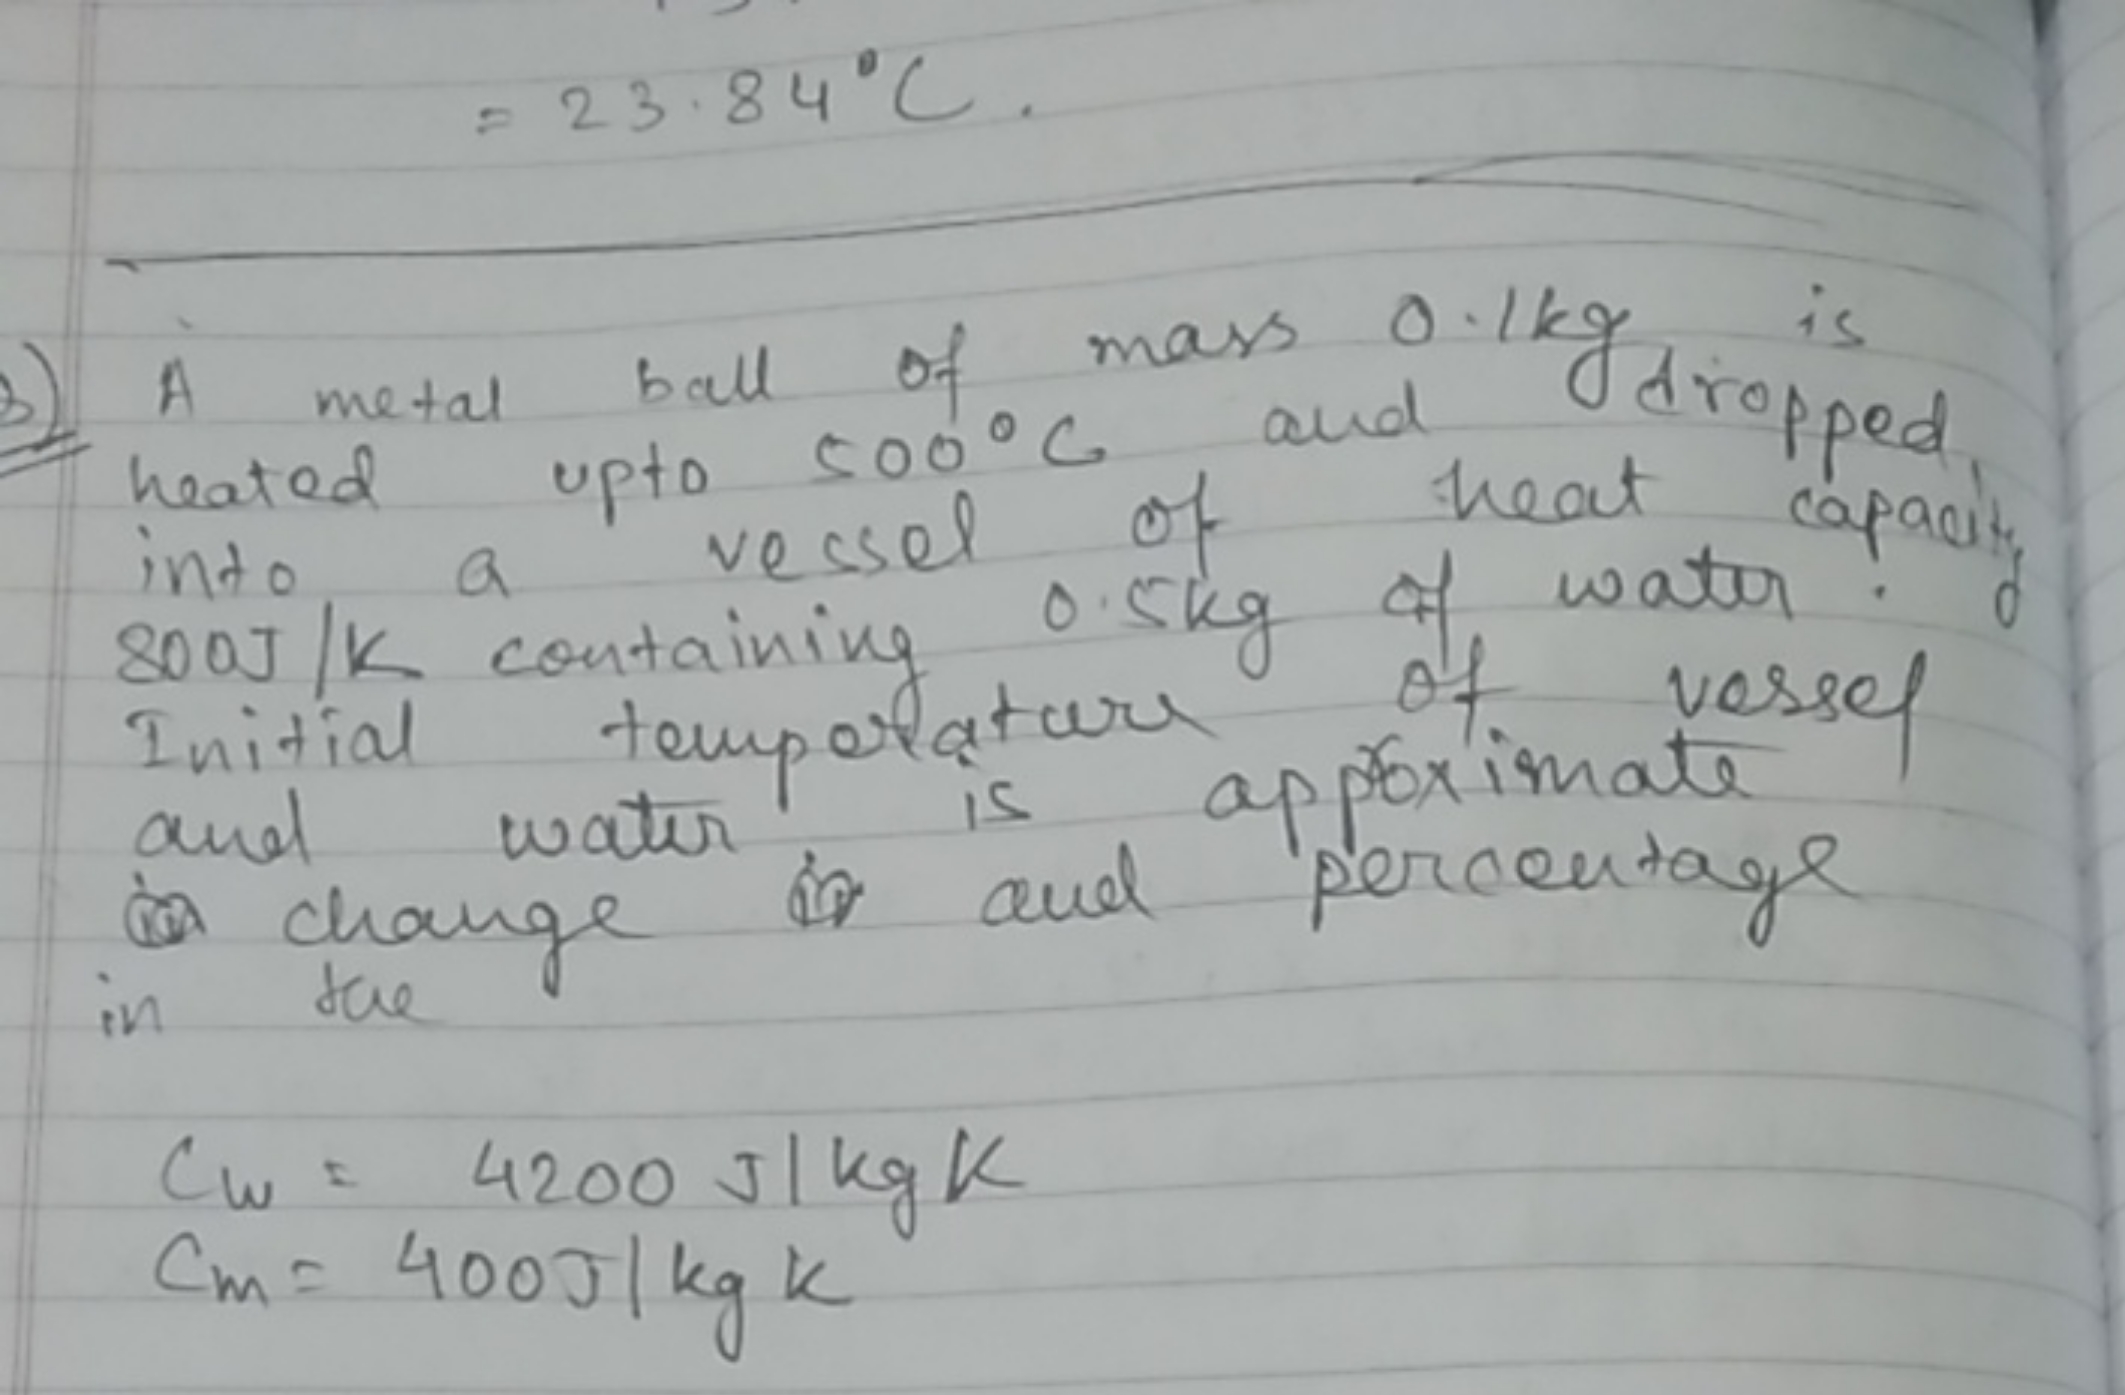 = 23.84°C.
3) A metal ball of mass 0.1kg is
heated upto 500°C and dropped
into a vessel of heat capacity
800J/K containing 0.5kg of water.
Initial temperature of vessel
and water is approximate
change and percentage
in the
Cw = 4200 J/kgK
Cm = 400J/kgk